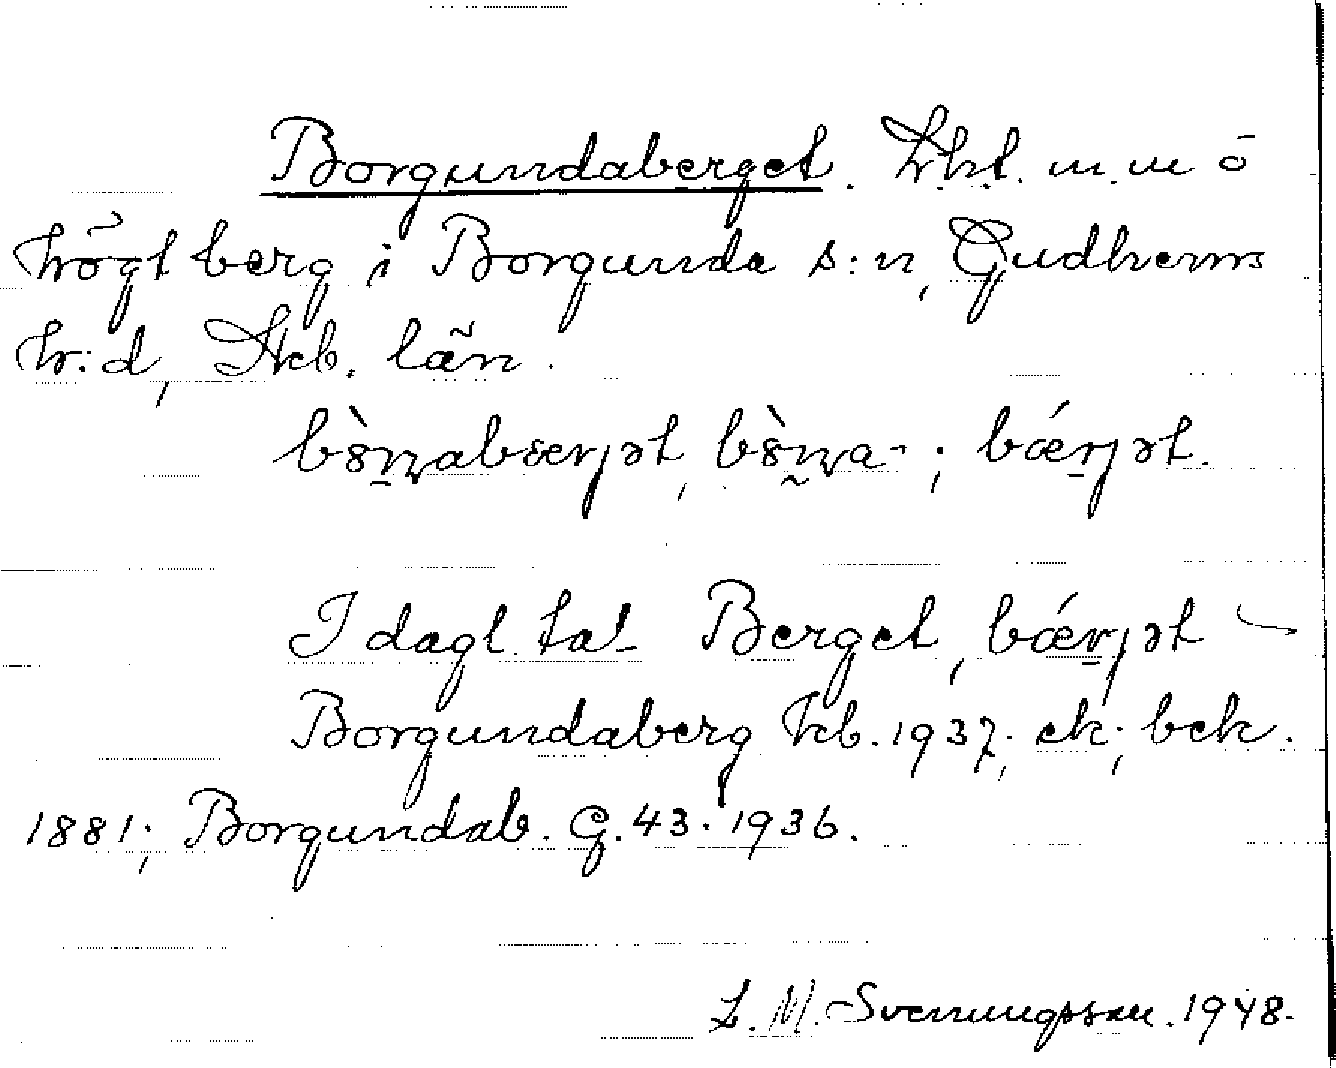 Borgundaberget. Trkt. m. m o
högt berg i Borgunda s:n, Gudhems
h:d, Skb. län.
bò̤n̥abærjət, bò̤n̥a-; bǽrjət.
I dagl. tal Berget, bǽrjət —
Borgundaberg kb. 1937; ek; bek.
1881; Borgundab. G. 43. 1936.
L. M. Svenungsson. 1948.